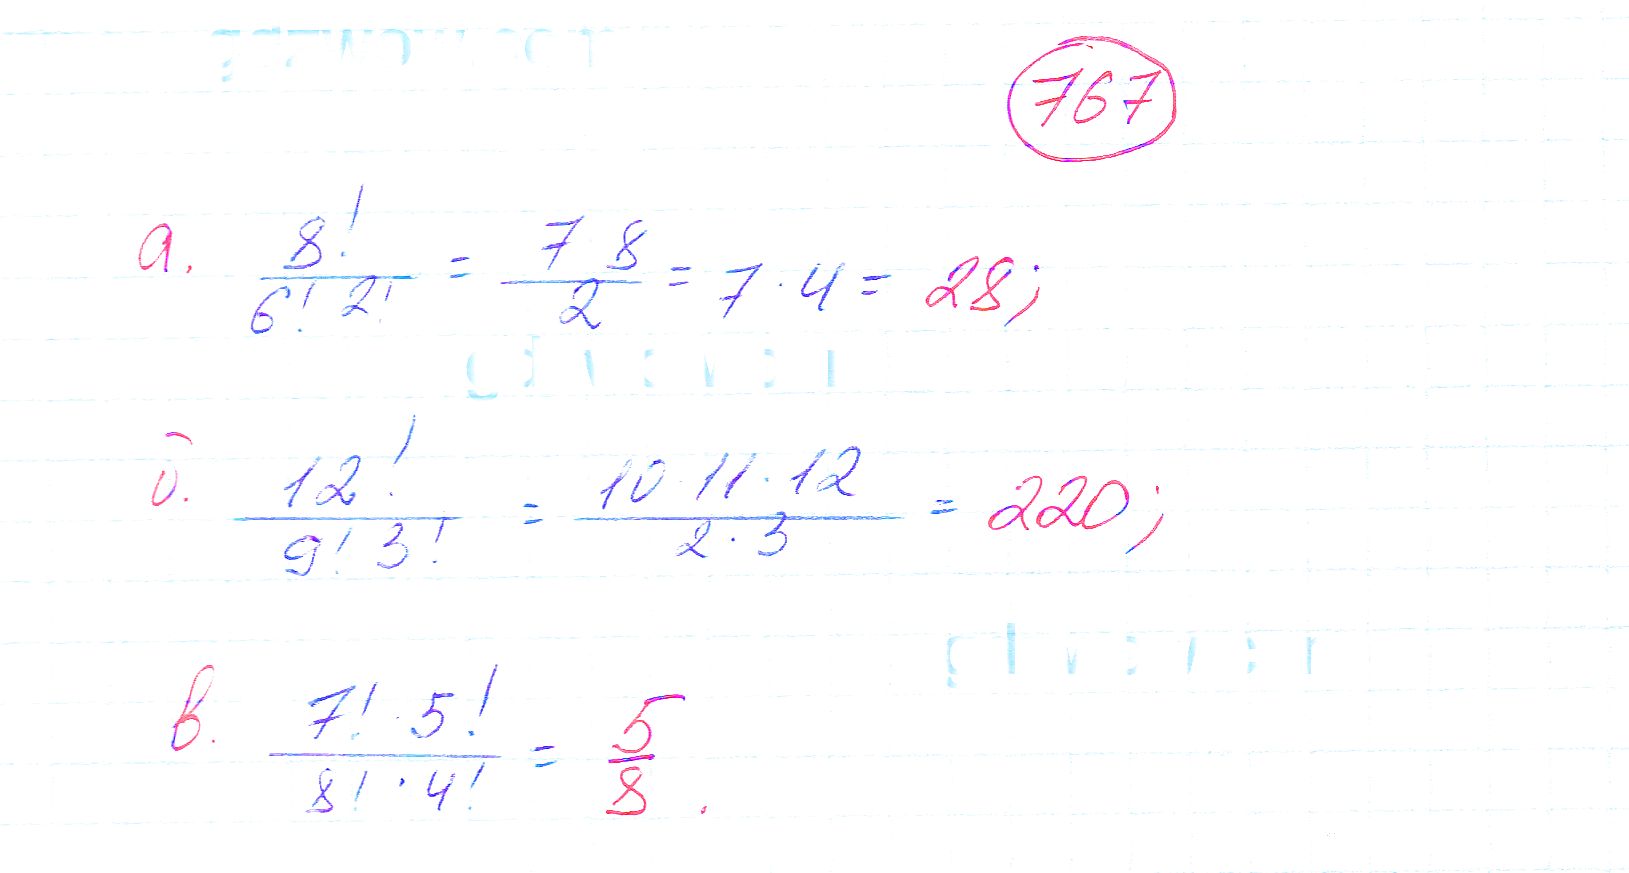 767
а. 8!/(6! 2!) = 7 8/2 = 7 · 4 = 28;
б. 12!/(9! 3!) = 10 · 11 · 12/(2 · 3) = 220;
в. 7! · 5!/(8! · 4!) = 5/8.